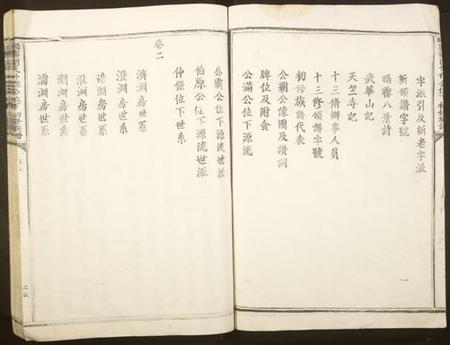 字派引及新老字派
新領譜字號
瑞霭八景詩
武華山記
天竺寺記
十三修辦事人員
十三修領譜字號
初修族譜代表
公霸公像圖及讚詞
牌位及附食
公滿公位下源流
公霸公位下源流世派
伯原公位下源流世派
仲傑公位下世系
卷二
濟淵房世系
澄淵房世系
淮淵房世系
湖淵房世系
濡淵房世系